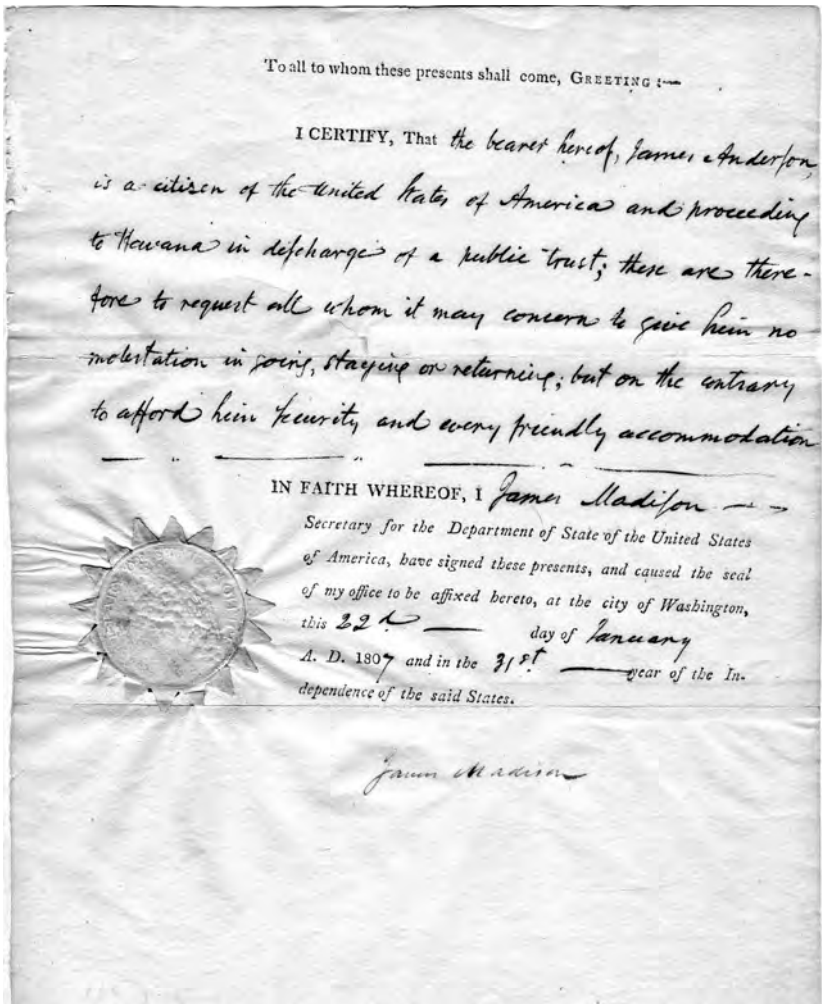 To all to whom these presents shall come, GREETING :—
I CERTIFY, That the bearer hereof, James Anderſon,
is a citizen of the United States of America and proceeding
to Havana in diſcharge of a public trust; these are there-
fore to request all whom it may concern to give him no
molestation in going, staying or returning; but on the contrary
to afford him security and every friendly accommodation
IN FAITH WHEREOF, I James Madiſon
Secretary for the Department of State of the United States
of America, have signed these presents, and caused the seal
of my office to be affixed hereto, at the city of Washington,
this 22d — day of January
A. D. 1807 and in the 31st — year of the In-
dependence of the said States.
James Madison